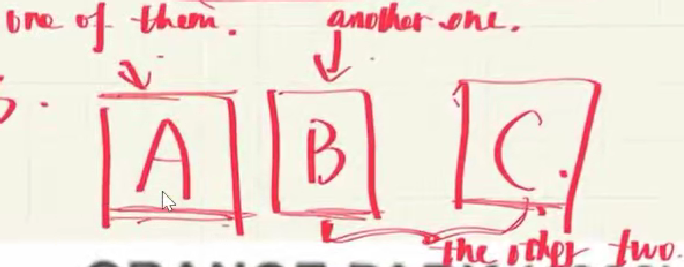 one of them.
another one.
A
B
C.
the other two.